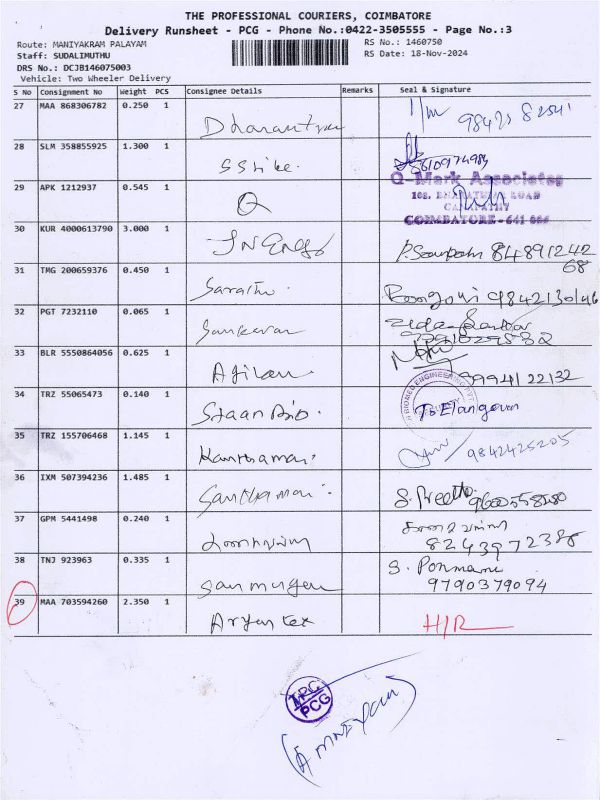 THE PROFESSIONAL COURIERS, COIMBATORE
Delivery Runsheet - PCG - Phone No.:0422-3505555 - Page No.:3
Route: MANIYAKRAM PALAYAM RS No.: 1460750
Staff: SUDALIMUTHU RS Date: 18-Nov-2024
DRS No.: DCJB146075003
Vehicle: Two Wheeler Delivery
S No Consignment No Weight PCS Consignee Details Remarks Seal & Signature
27 MAA 868306782 0.250 1
28 SLM 358855925 1.300 1 S Srike.
29 APK 1212937 0.545 1 Q
Q-Mark Associates
COIMBATORE - 641 006
30 KUR 4000613790 3.000 1 8489124268
31 TMG 200659376 0.450 1 Sarathi
32 PGT 7232110 0.065 1 Sankaran
33 BLR 5550864056 0.625 1 Agilan 9994122132
34 TRZ 55065473 0.140 1 Staan Bio. B. Elangovan
35 TRZ 155706468 1.145 1 Kanthamani 9842425205
36 IXM 507394236 1.485 1 Santhamani S. Preetha
37 GPM 5441498 0.240 1 8243972388
38 TNJ 923963 0.335 1 Sanmugam S. Ponmani
9790379094
39 MAA 703594260 2.350 1 Aryan tex H/R
PCG